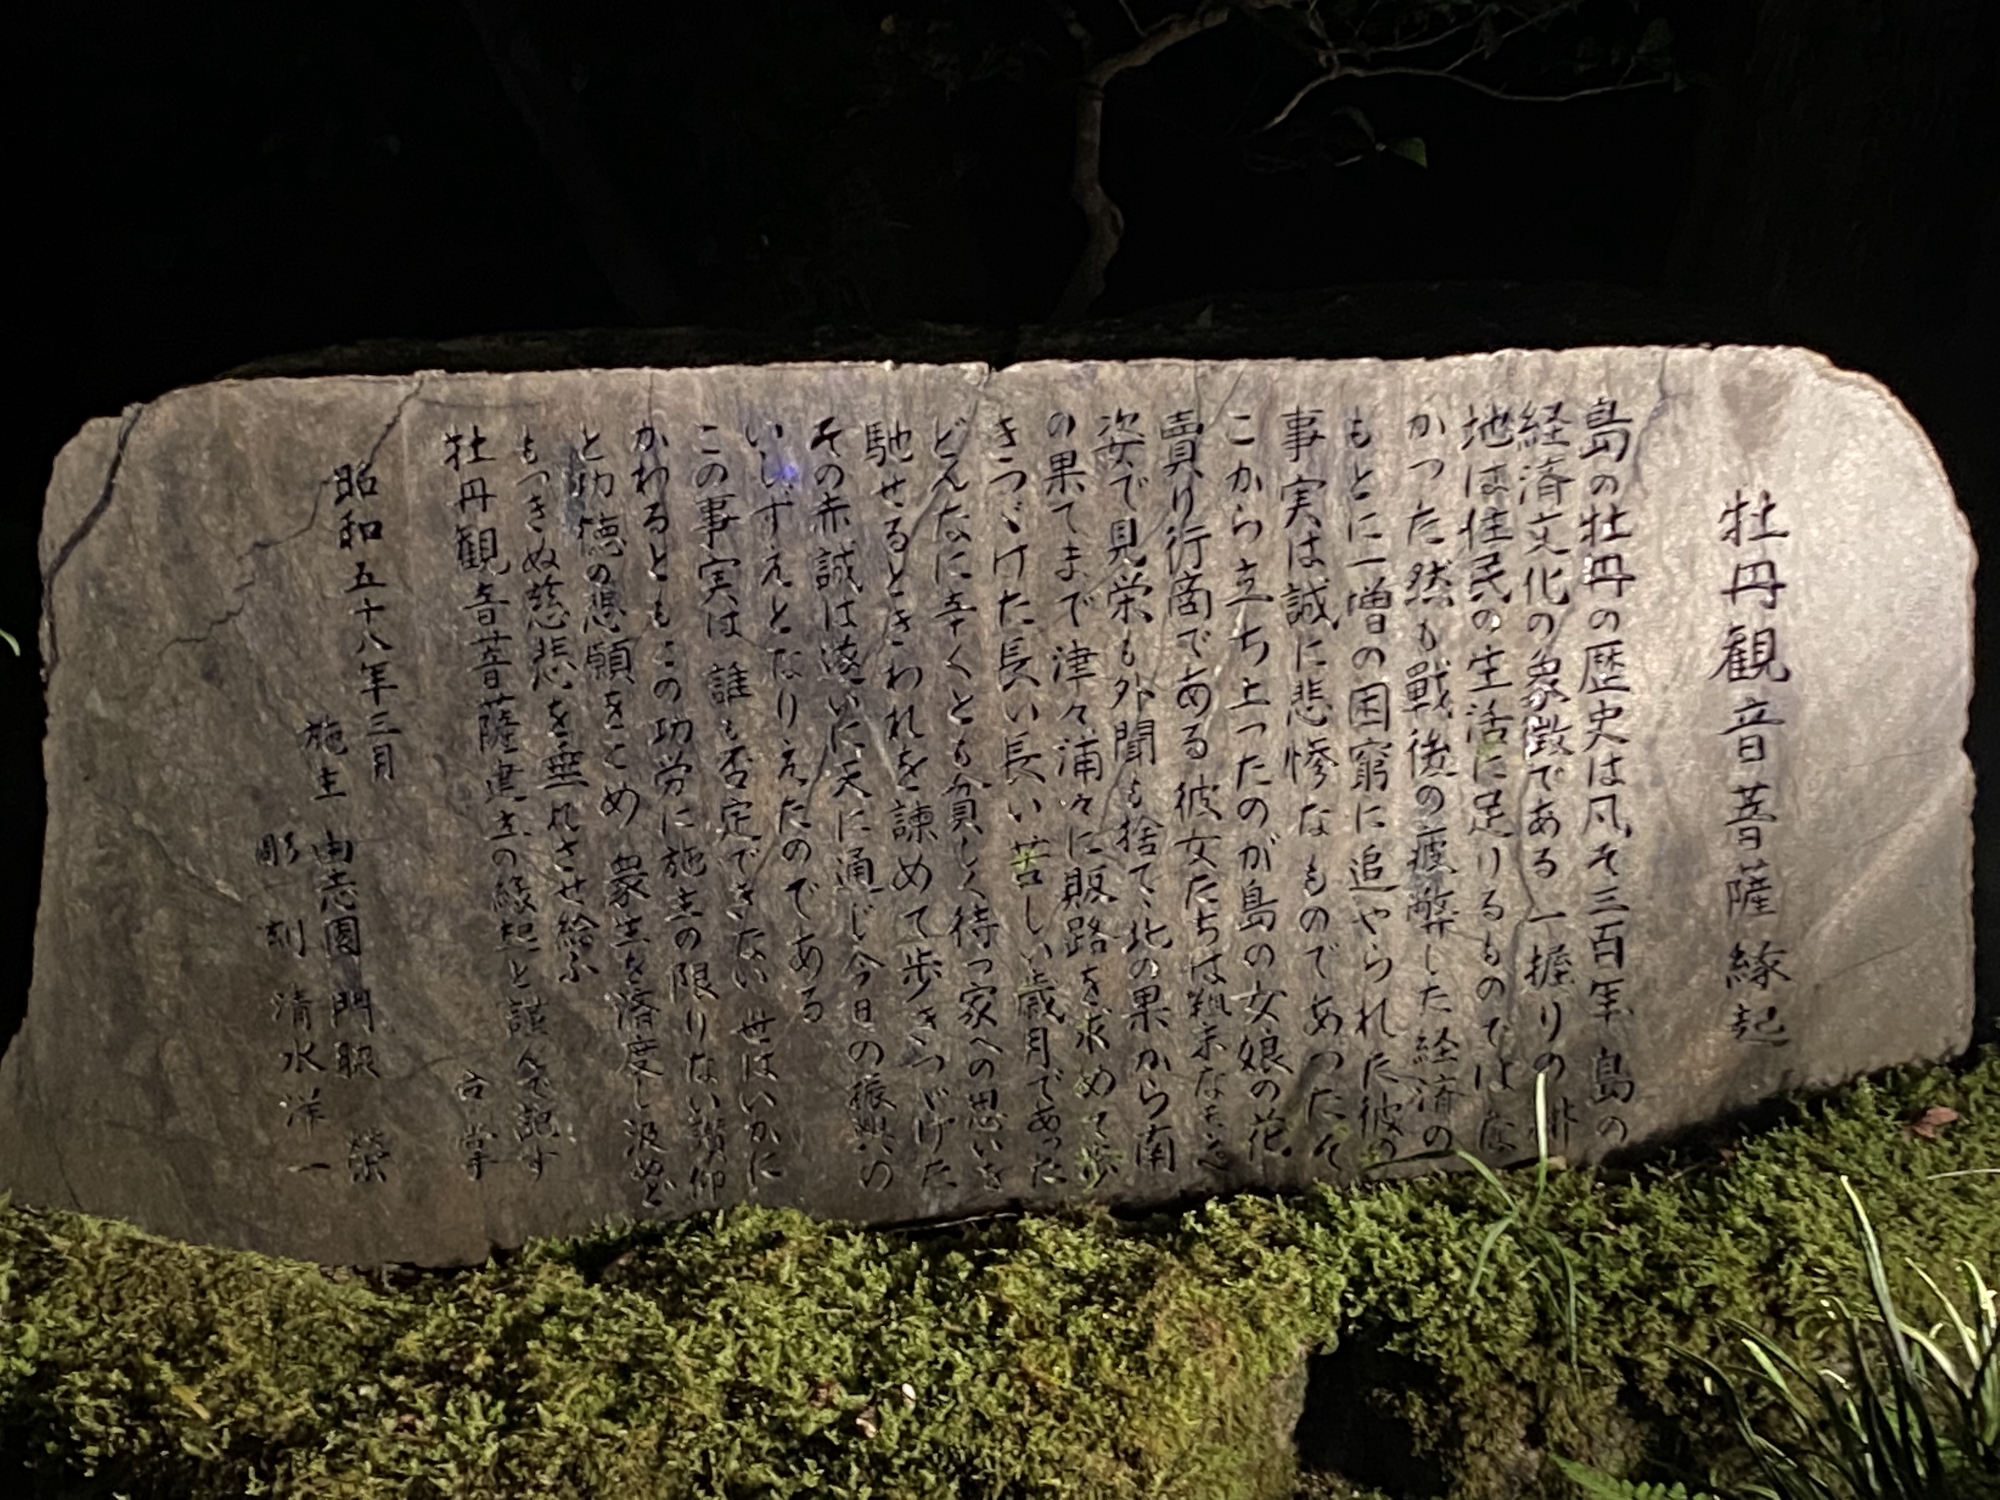 牡丹観音菩薩縁起
島の牡丹の歴史は凡そ三百年 島の
経済文化の象徴である 一握りの耕
地は住民の生活に足りるものではな
かった然も戦後の疲弊した経済の
もとに一増の困窮に追やられた彼の
事実は誠に悲惨なものであったそ
こから立ち上ったのが島の女娘の花
賣り行商である 彼女たちは粗末なもんぺ
姿で見栄も外聞も捨て 北の果から南
の果てまで津々浦々に販路を求めて歩
きつゞけた長い長い苦しい歳月であった
どんなに辛くとも貧しく待つ家への思いを
馳せるときわれを諫めて歩きつゞけた
その赤誠は遂いに天に通じ今日の振興の
いしずえとなりえたのである
この事実は 誰も否定できない 世はいかに
かわるともこの功労に施主の限りない讃仰
と功徳の悲願をこめ 衆生を済度し汲めど
もつきぬ慈悲を垂れさせ給ふ
牡丹観音菩薩建立の縁起と謹んで記す
合掌
昭和五十八年三月
施主 由志園 門脇 榮
彫刻 清水洋一